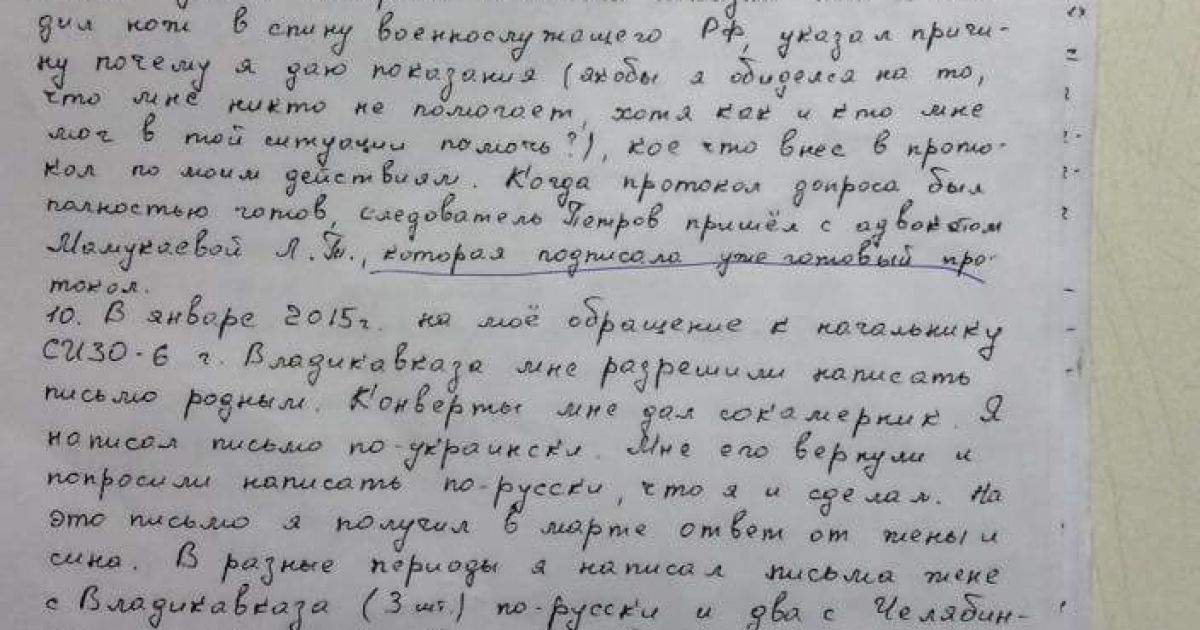 дил нож в спину военнослужащего РФ, указал причи-
ну почему я даю показания (якобы я обиделся на то,
что мне никто не помогает, хотя как и кто мне
мог в той ситуации помочь?), кое что внес в прото-
кол по моим действиям. Когда протокол допроса был
полностью готов, следователь Петров пришёл с адвокатом
Мамукаевой Л. Т., которая подписала уже готовый про-
токол.
10. В январе 2015г. на моё обращение к начальнику
СИЗО-6 г. Владикавказа мне разрешили написать
письмо родным. Конверты мне дал сокамерник. Я
написал письмо по-украински. Мне его вернули и
попросили написать по-русски, что я и сделал. На
это письмо я получил в марте ответ от жены и
сина. В разные периоды я написал письма жене
с Владикавказа (3 шт.) по-русски и два с Челябин-